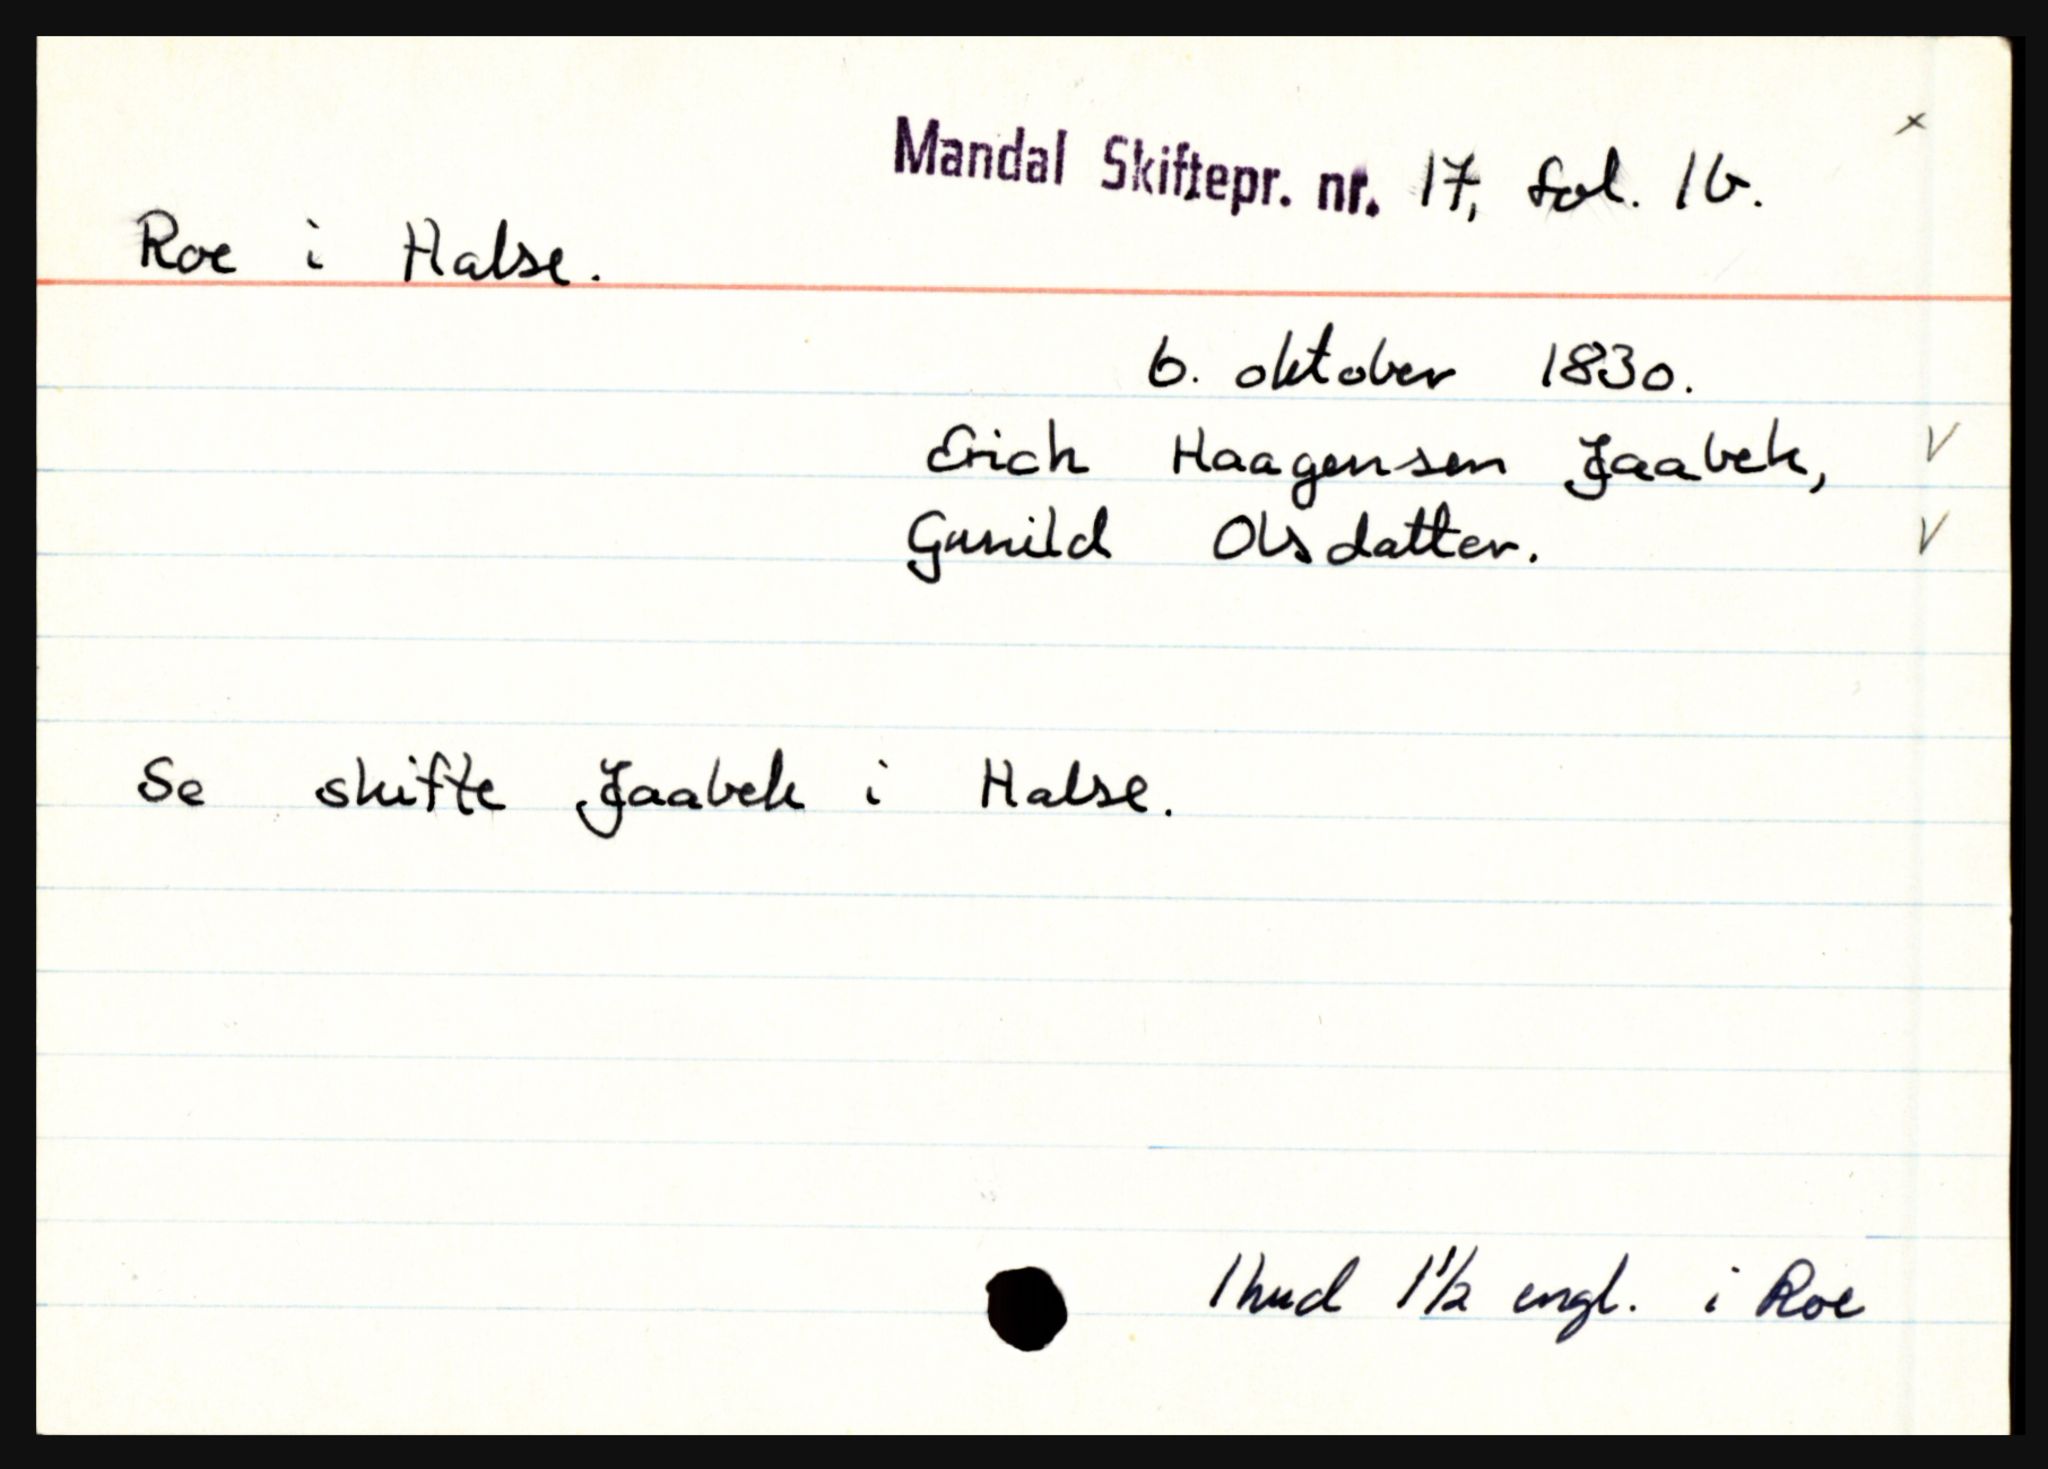 Mandal Skiftepr. nr. 17, fol. 1b.
Roe i Halse.
6. oktober 1830.
Erich Haagensen Jaabek,
Gunild Olsdatter.
Se skifte Jaabek i Halse.
1 hud 1 1/2 engl. i Roe